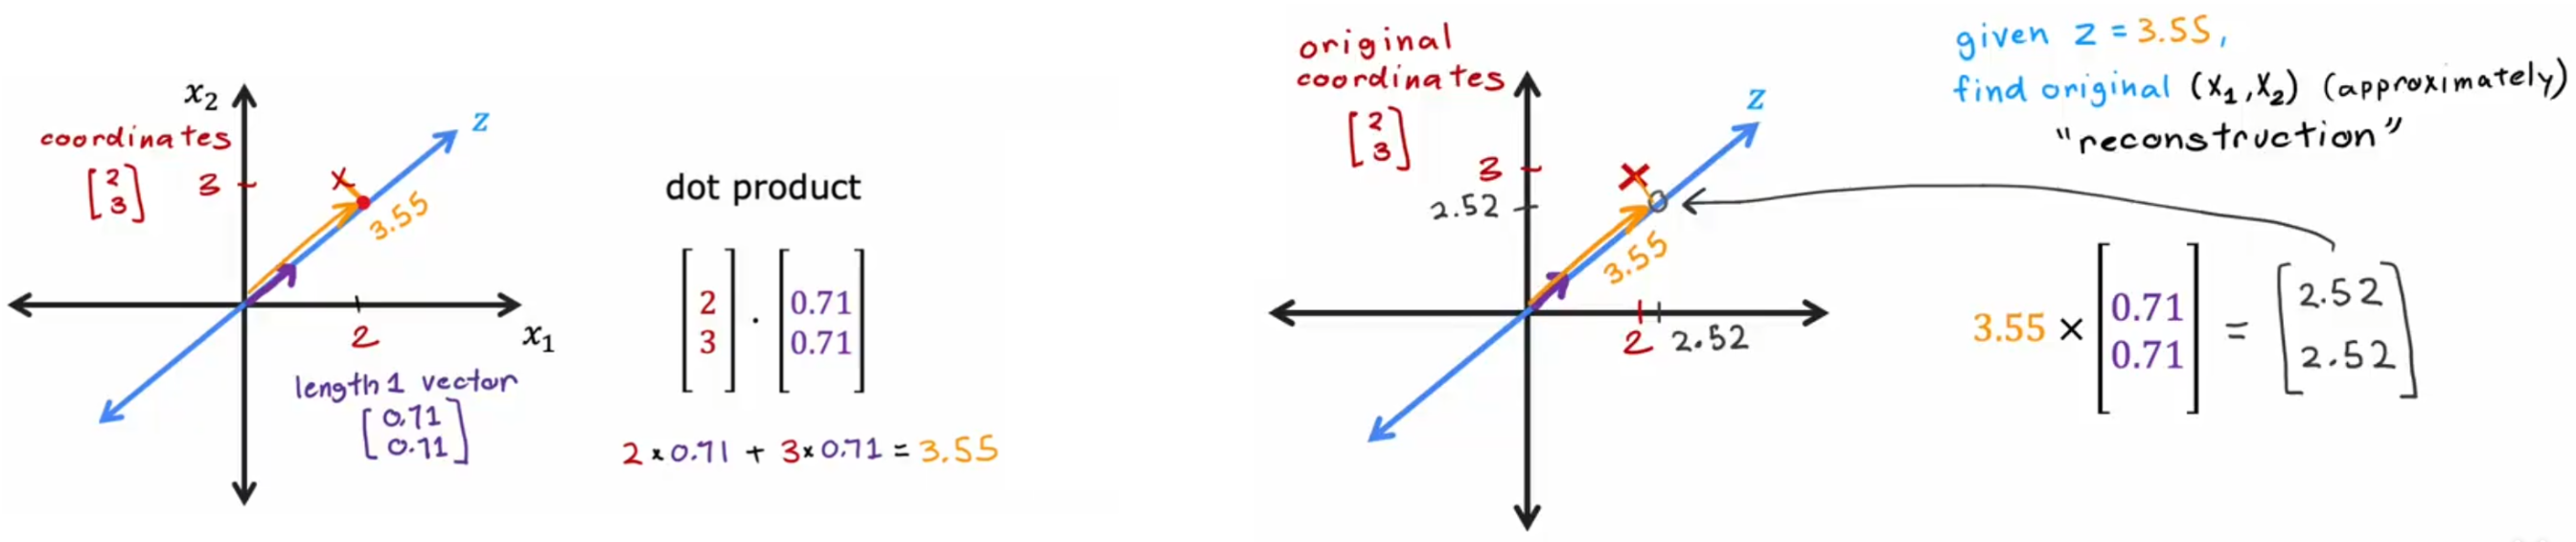 x₂
z
coordinates
[2
3]
3
x
3.55
2
x₁
length 1 vector
[0.71
0.71]
dot product
[2
3] · [0.71
0.71]
2 × 0.71 + 3 × 0.71 = 3.55
original
coordinates
[2
3]
z
3
2.52
×
3.55
2 2.52
given z = 3.55,
find original (x₁, x₂) (approximately)
"reconstruction"
3.55 × [0.71
0.71] = [2.52
2.52]